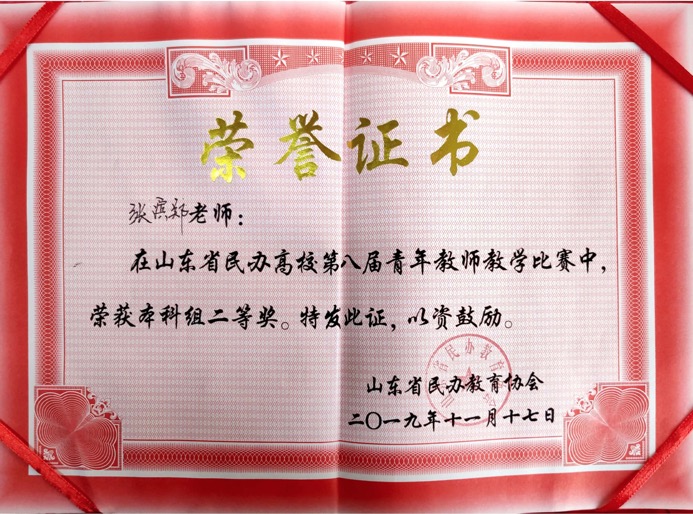 荣誉证书
张滨郑老师：
在山东省民办高校第八届青年教师教学比赛中，
荣获本科组二等奖。特发此证，以资鼓励。
山东省民办教育协会
二〇一九年十一月十七日